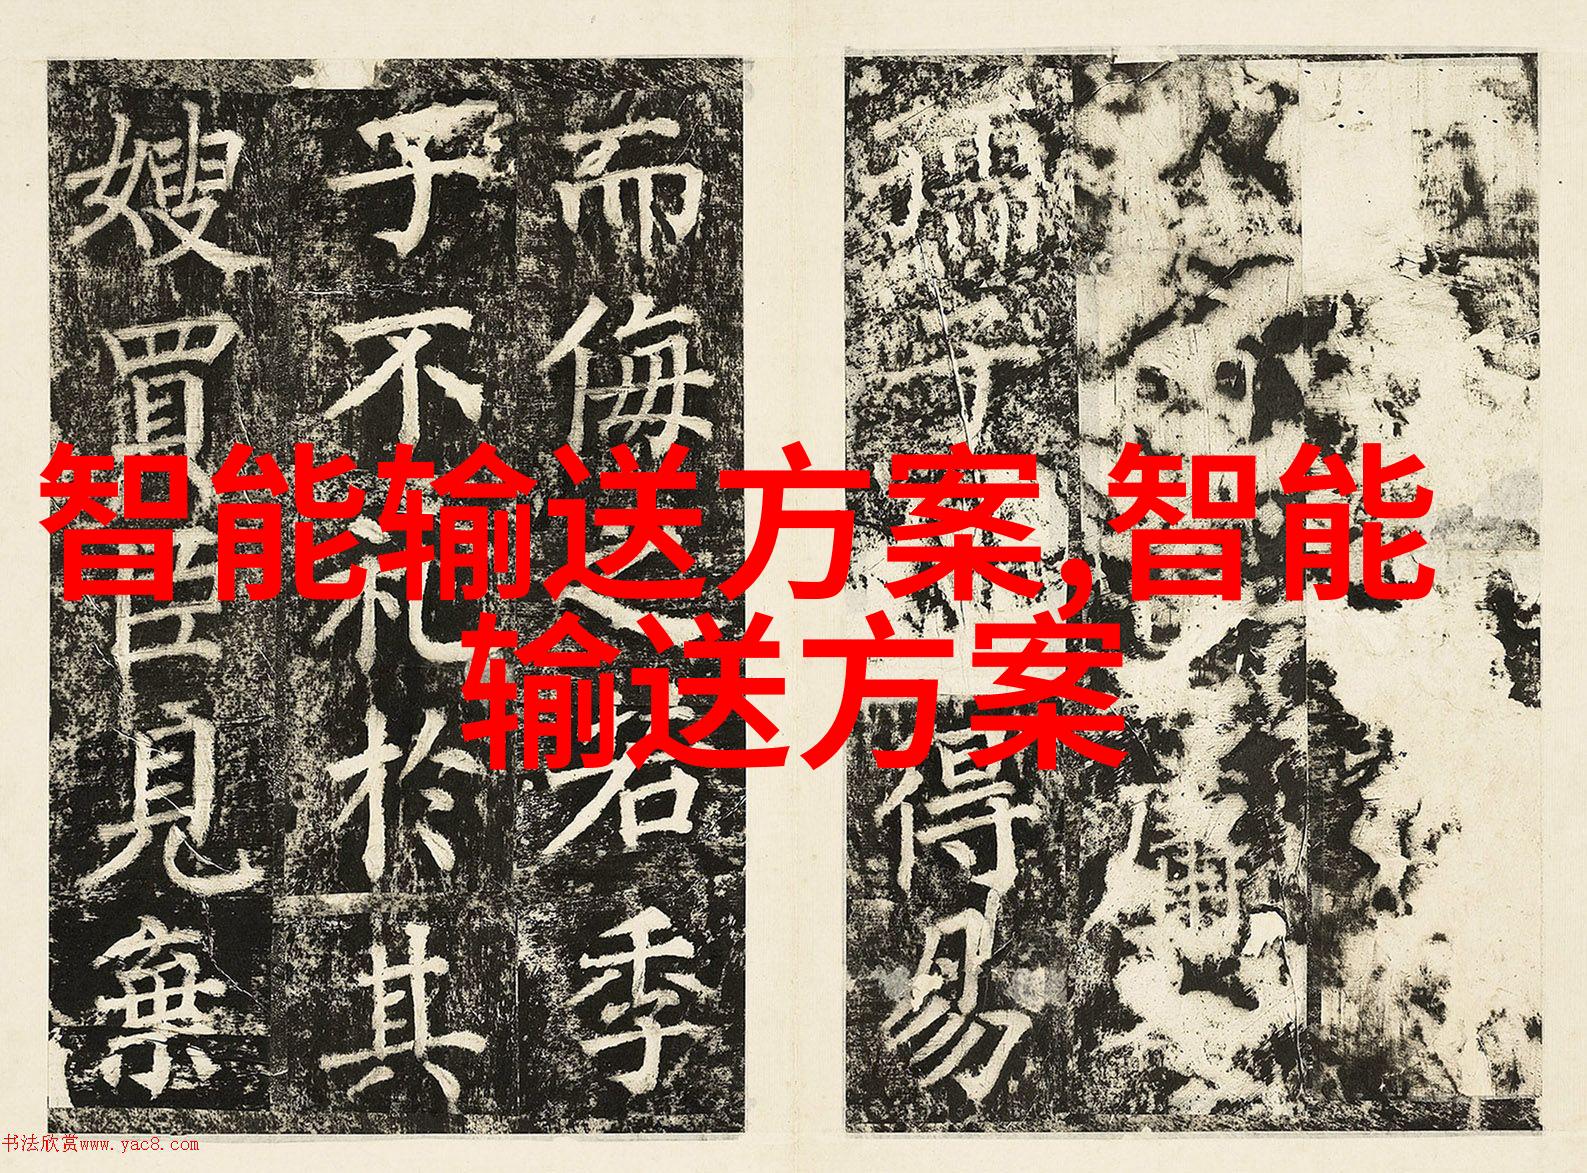 智能输送方案,智能
输送方案
得易
而侮之若季
子不礼於其
嫂買臣見棄
书法欣赏www.yac8.com